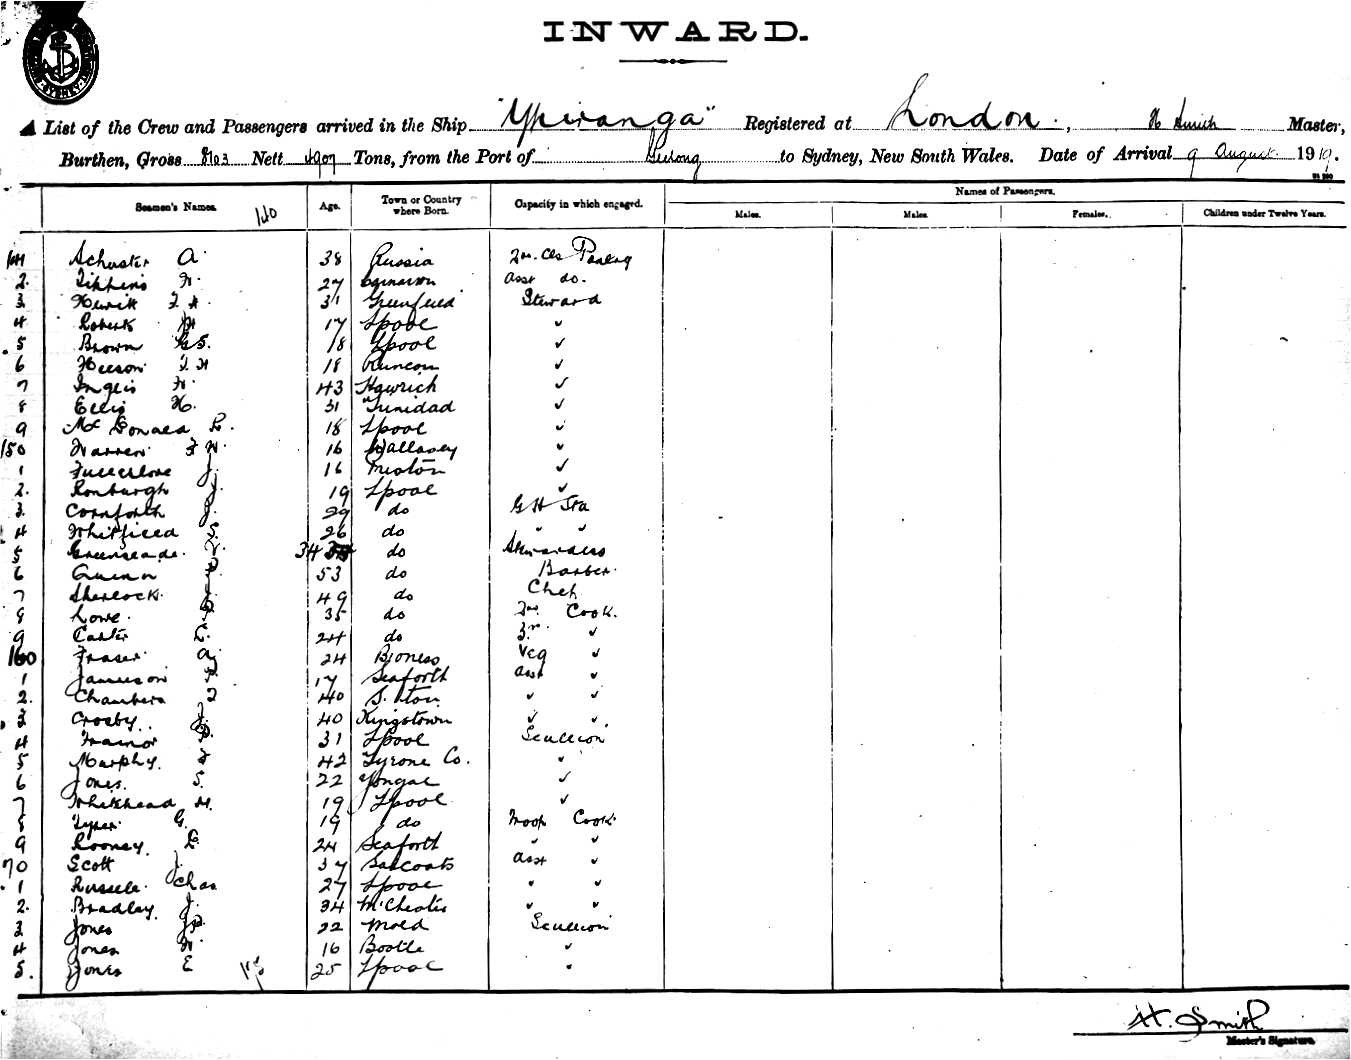 INWARD.
List of the Crew and Passengers arrived in the Ship "Ypiranga" Registered at London, H Smith Master,
Burthen, Gross 8103 Nett 4907 Tons, from the Port of Geelong to Sydney, New South Wales. Date of Arrival 9 August 1919.
Seamen's Names. Age. Town or Country where Born. Capacity in which engaged. Names of Passengers.
Males. Males. Females. Children under Twelve Years.
141 Schuster A 38 Russia 2nd Cls Pantry
2. 27 asst do.
3. Hewitt F H 31 Greenfield Steward
4 Roberts 17 Lpool ✓
5 Brown G S. 18 Lpool ✓
6 Heeson J H 18 Runcon ✓
7 Inglis W. 43 Harwich ✓
8 Ellis H. 31 Trinidad ✓
9 McDonald L. 18 Lpool ✓
150 Warren F W. 16 Wallasey ✓
1 Fullerlove J. 16 ✓
2. Ronburgh J. 19 Lpool ✓
3. Cornforth J. 29 do GH Sta
4 Whitfield S. 26 do " "
5 Greenslade. 34 do Stewardess
6 Quinn 53 do Barber.
7 Sherlock. 49 do Chef
8 Lowe. 35 do 2nd Cook.
9 Carter E. 24 do 3rd ✓
160 Fraser A. 24 Boness Veg ✓
1 Jamieson 17 Seaforth asst ✓
2. Chambers 40 S. ton ✓ ✓
3 Crosby. J. 40 Kingstown ✓ ✓
4 Trainor 31 Lpool Scullion
5 Murphy. J 42 Tyrone Co. ✓
6 Jones. S. 22 ✓
7 Whitehead H. 19 Lpool ✓
8 Tyrer G. 19 do Troop Cook
9 Rooney. E. 24 Seaforth ✓ ✓
70 Scott J. 37 Saltcoats asst ✓
1 Russell. Chas 27 Lpool ✓ ✓
2. Bradley. J. 34 M'Chester ✓ ✓
3 Jones 22 Mold Scullion
4 Jones W. 16 Bootle ✓
5. Jones E 25 Lpool ✓
H. Smith
Master's Signature.